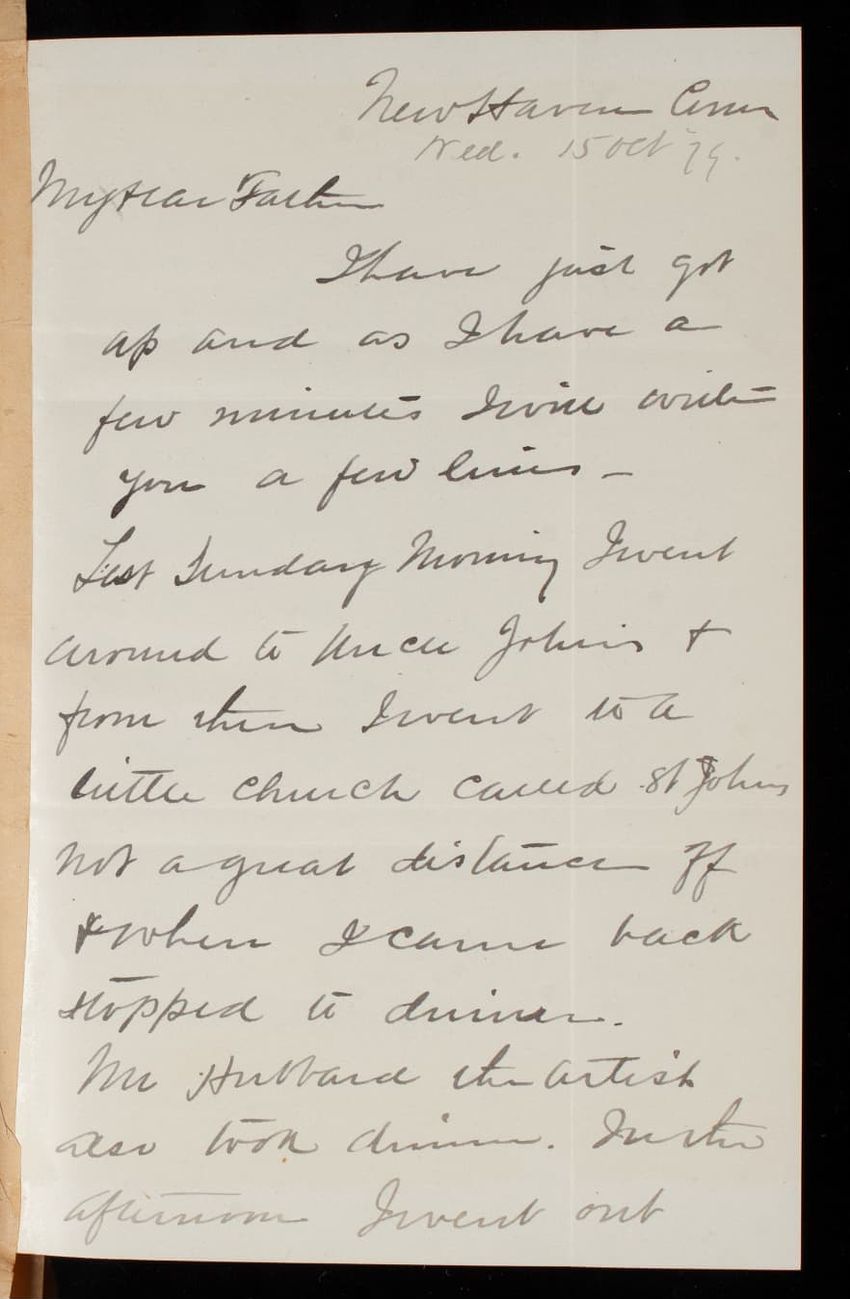 New Haven Conn
Wed. 15 Oct 79.
My dear Father
I have just got
up and as I have a
few minutes I will write
you a few lines -
Last Sunday Morning I went
around to Uncle Johns +
from there I went to a
little church called St Johns
not a great distance off
+ when I came back
stopped to dinner.
Mr Hubbard the artist
also took dinner. In the
afternoon I went out